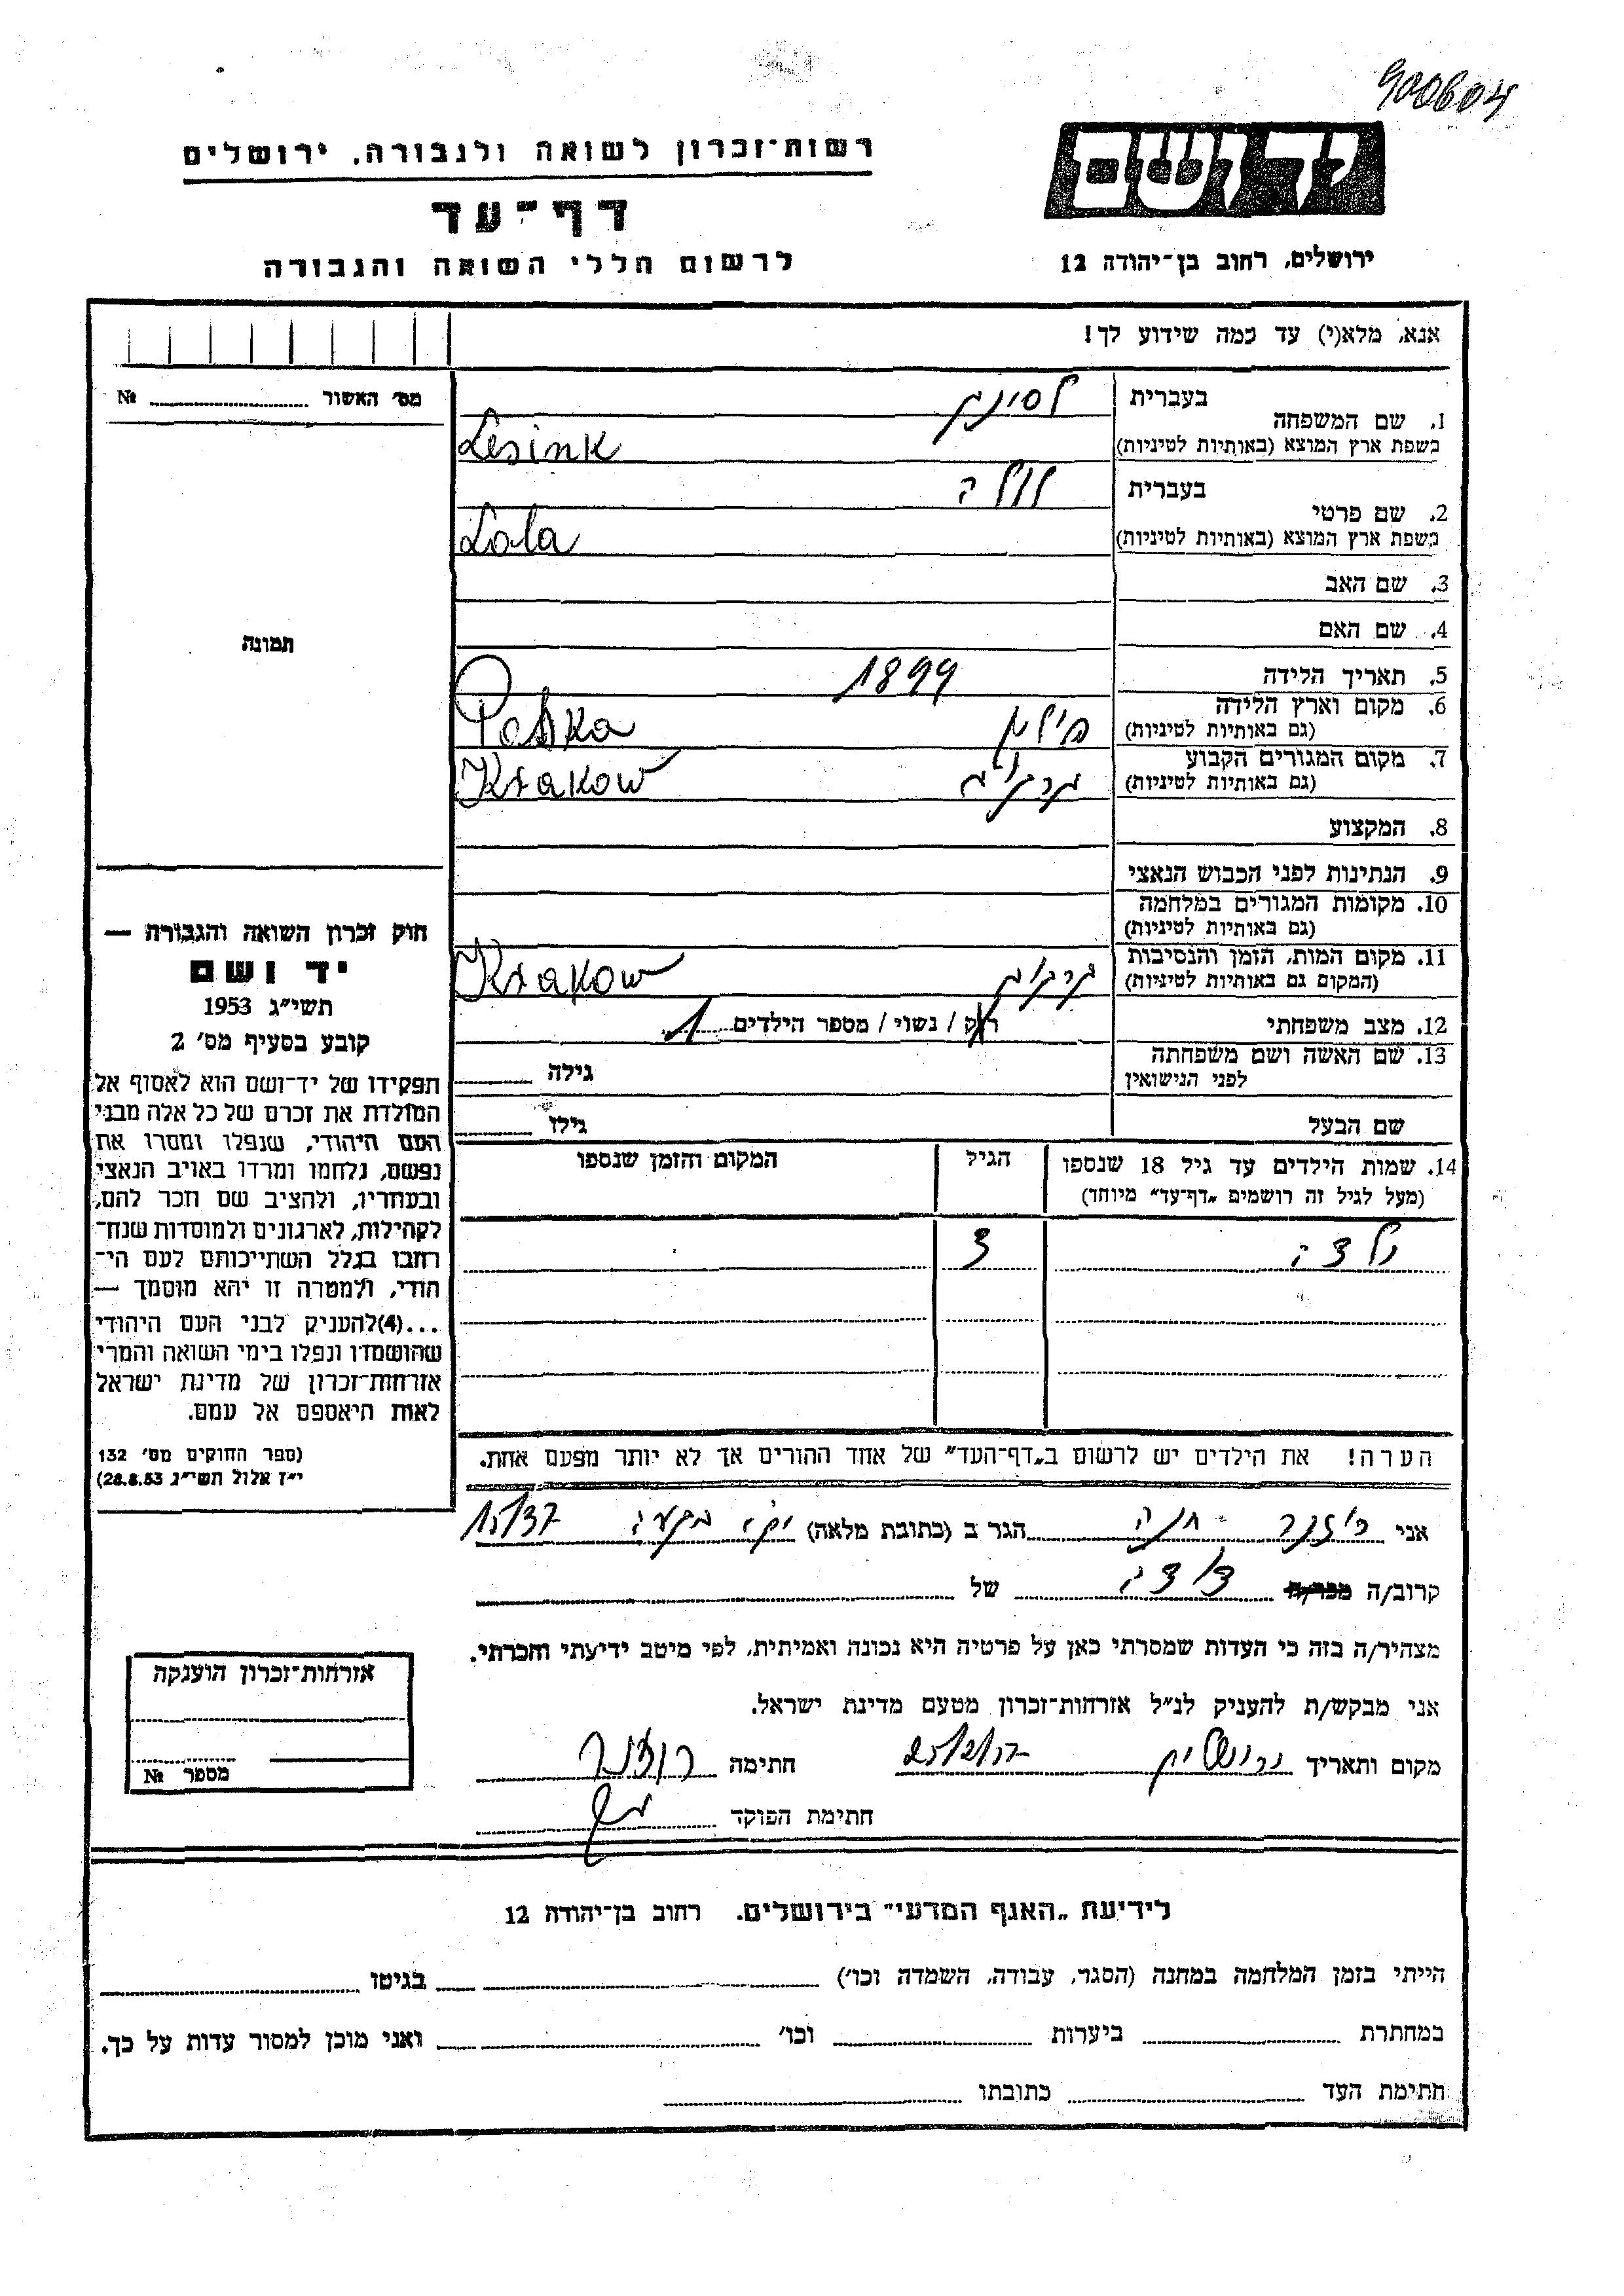 900604
רשות־זכרון לשואה ולגבורה, ירושלים
דף־עד
לרשום חללי השואה והגבורה
ידושם
ירושלים, רחוב בן־יהודה 12
אנא, מלא(י) עד כמה שידוע לך!
מס׳ האשור № 
1. שם המשפחה
בעברית לסינק
בשפת ארץ המוצא (באותיות לטיניות) Lesink
2. שם פרטי
בעברית לולה
בשפת ארץ המוצא (באותיות לטיניות) Lola
3. שם האב
4. שם האם
תמונה
5. תאריך הלידה 1899
6. מקום וארץ הלידה
(גם באותיות לטיניות) פולין Polska
7. מקום המגורים הקבוע
(גם באותיות לטיניות) קרקוב Krakow
8. המקצוע
9. הנתינות לפני הכבוש הנאצי
10. מקומות המגורים במלחמה
(גם באותיות לטיניות)
11. מקום המות, הזמן והנסיבות
(המקום גם באותיות לטיניות) קרקוב Krakow
12. מצב משפחתי רוק / נשוי / מספר הילדים 1
13. שם האשה ושם משפחתה
לפני הנישואין גילה
שם הבעל גילו
14. שמות הילדים עד גיל 18 שנספו
(מעל לגיל זה רושמים „דף־עד״ מיוחד)
הגיל
המקום והזמן שנספו
3
הערה! את הילדים יש לרשום ב„דף־העד״ של אחד ההורים אך לא יותר מפעם אחת.
חוק זכרון השואה והגבורה —
יד ושם
תשי״ג 1953
קובע בסעיף מס׳ 2
תפקידו של יד־ושם הוא לאסוף אל
המולדת את זכרם של כל אלה מבני
העם היהודי, שנפלו ומסרו את
נפשם, נלחמו ומרדו באויב הנאצי
ובעוזריו, ולהציב שם וזכר להם,
לקהילות, לארגונים ולמוסדות שנח־
רחבו בגלל השתייכותם לעם הי־
הודי, ולמטרה זו יהא מוסמך —
...(4)להעניק לבני העם היהודי
שהושמדו ונפלו בימי השואה והמרי
אזרחות־זכרון של מדינת ישראל
לאות היאספם אל עמם.
(ספר החוקים מס׳ 132
י״ז אלול תשי״ג 28.8.53)
אני חנה הגר ב (כתובת מלאה) 15/37
קרוב/ה מכר/ה דודה של
מצהיר/ה בזה כי העדות שמסרתי כאן על פרטיה היא נכונה ואמיתית, לפי מיטב ידיעתי והכרתי.
אני מבקש/ת להעניק לנ״ל אזרחות־זכרון מטעם מדינת ישראל.
מקום ותאריך ירושלים חתימה
חתימת הפוקד
אזרחות־זכרון הוענקה
מספר №
לידיעת „האגף המדעי״ בירושלים. רחוב בן־יהודה 12
הייתי בזמן המלחמה במחנה (הסגר, עבודה, השמדה וכו׳) בגיטו
במחתרת ביערות וכו׳ ואני מוכן למסור עדות על כך.
חתימת העד כתובתו